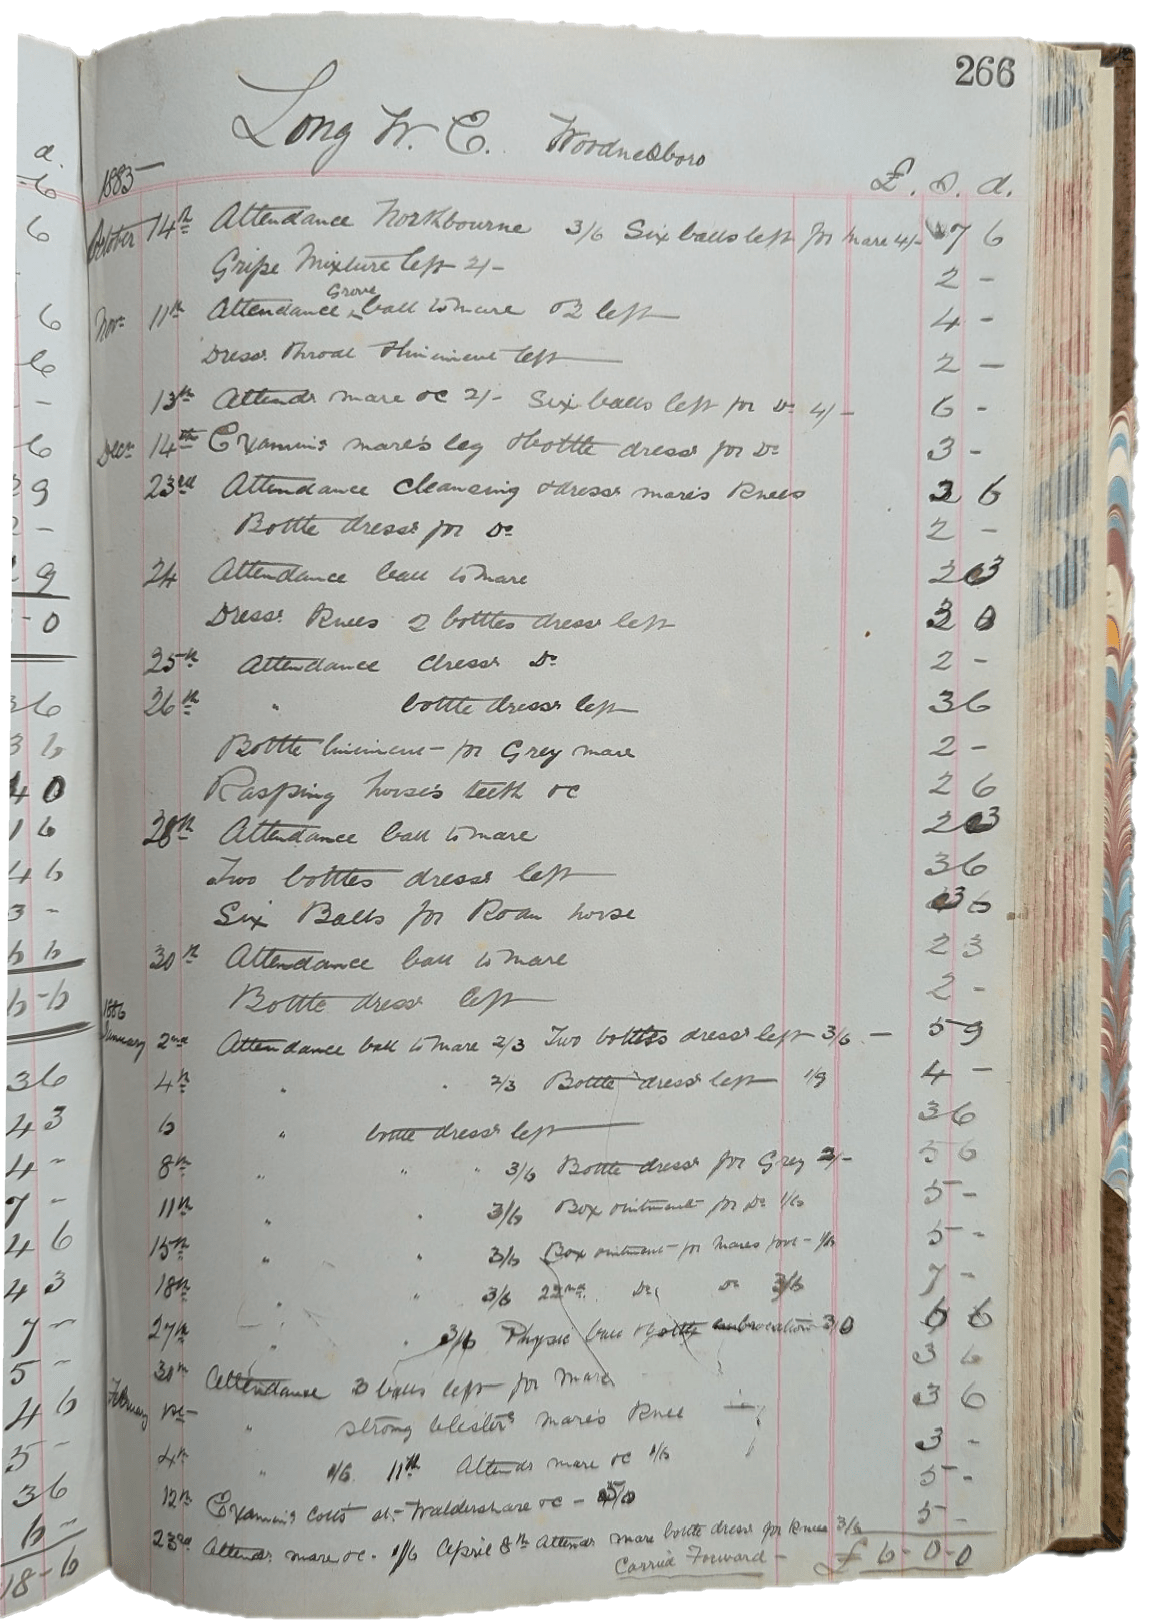 266
Long W. C. Woodnesboro
1885
£. s. d.
October 14th Attendance Northbourne 3/6 Six balls left for mare 4/- 7 6
Gripe Mixture left 2/- 2 -
Novr 11th Attendance Grove ball to mare & 2 left 4 -
Dressg throat & liniment left 2 -
13th Attendg mare &c 2/- Six balls left for Do 4/- 6 -
Decr 14th Examing mare's leg & bottle dressg for Do 3 -
23rd Attendance cleansing & dressg mare's Knees 3 6
Bottle dressg for Do 2 -
24 Attendance ball to mare 2 3
Dressg Knees 2 bottles dressg left 3 0
25th Attendance dressg Do 2 -
26th " bottle dressg left 3 6
Bottle liniment for Grey mare 2 -
Rasping horse's teeth &c 2 6
28th Attendance ball to mare 2 3
Two bottles dressg left 3 6
Six Balls for Roan horse 3 6
30th Attendance ball to mare 2 3
Bottle dressg left 2 -
1886
January 2nd Attendance ball to mare 2/3 Two bottles dressg left 3/6 - 5 9
4th " " 2/3 Bottle dressg left 1/9 4 -
6 " bottle dressg left 3 6
8th " " " 3/6 Bottle dressg for Grey 2/- 5 6
11th " " 3/6 Box ointment for Do 1/6 5 -
15th " " 3/6 Box ointment for mares foot 1/6 5 -
18th " " 3/6 22nd Do Do 3/6 7 -
27th " " 3/6 Physic ball & bottle embrocation 3/0 6 6
30th Attendance 3 balls left for mare 3 6
February 1st " strong blisterg mare's Knee 3 6
4th " 1/6 11th Attendg mare &c 1/6 3 -
12th Examing colts at Waldershare &c - 5/0 5 -
23rd Attendg mare &c. 1/6 April 8th Attendg mare bottle dressg for Knees 3/6 5 -
Carried Forward - £ 6-0-0